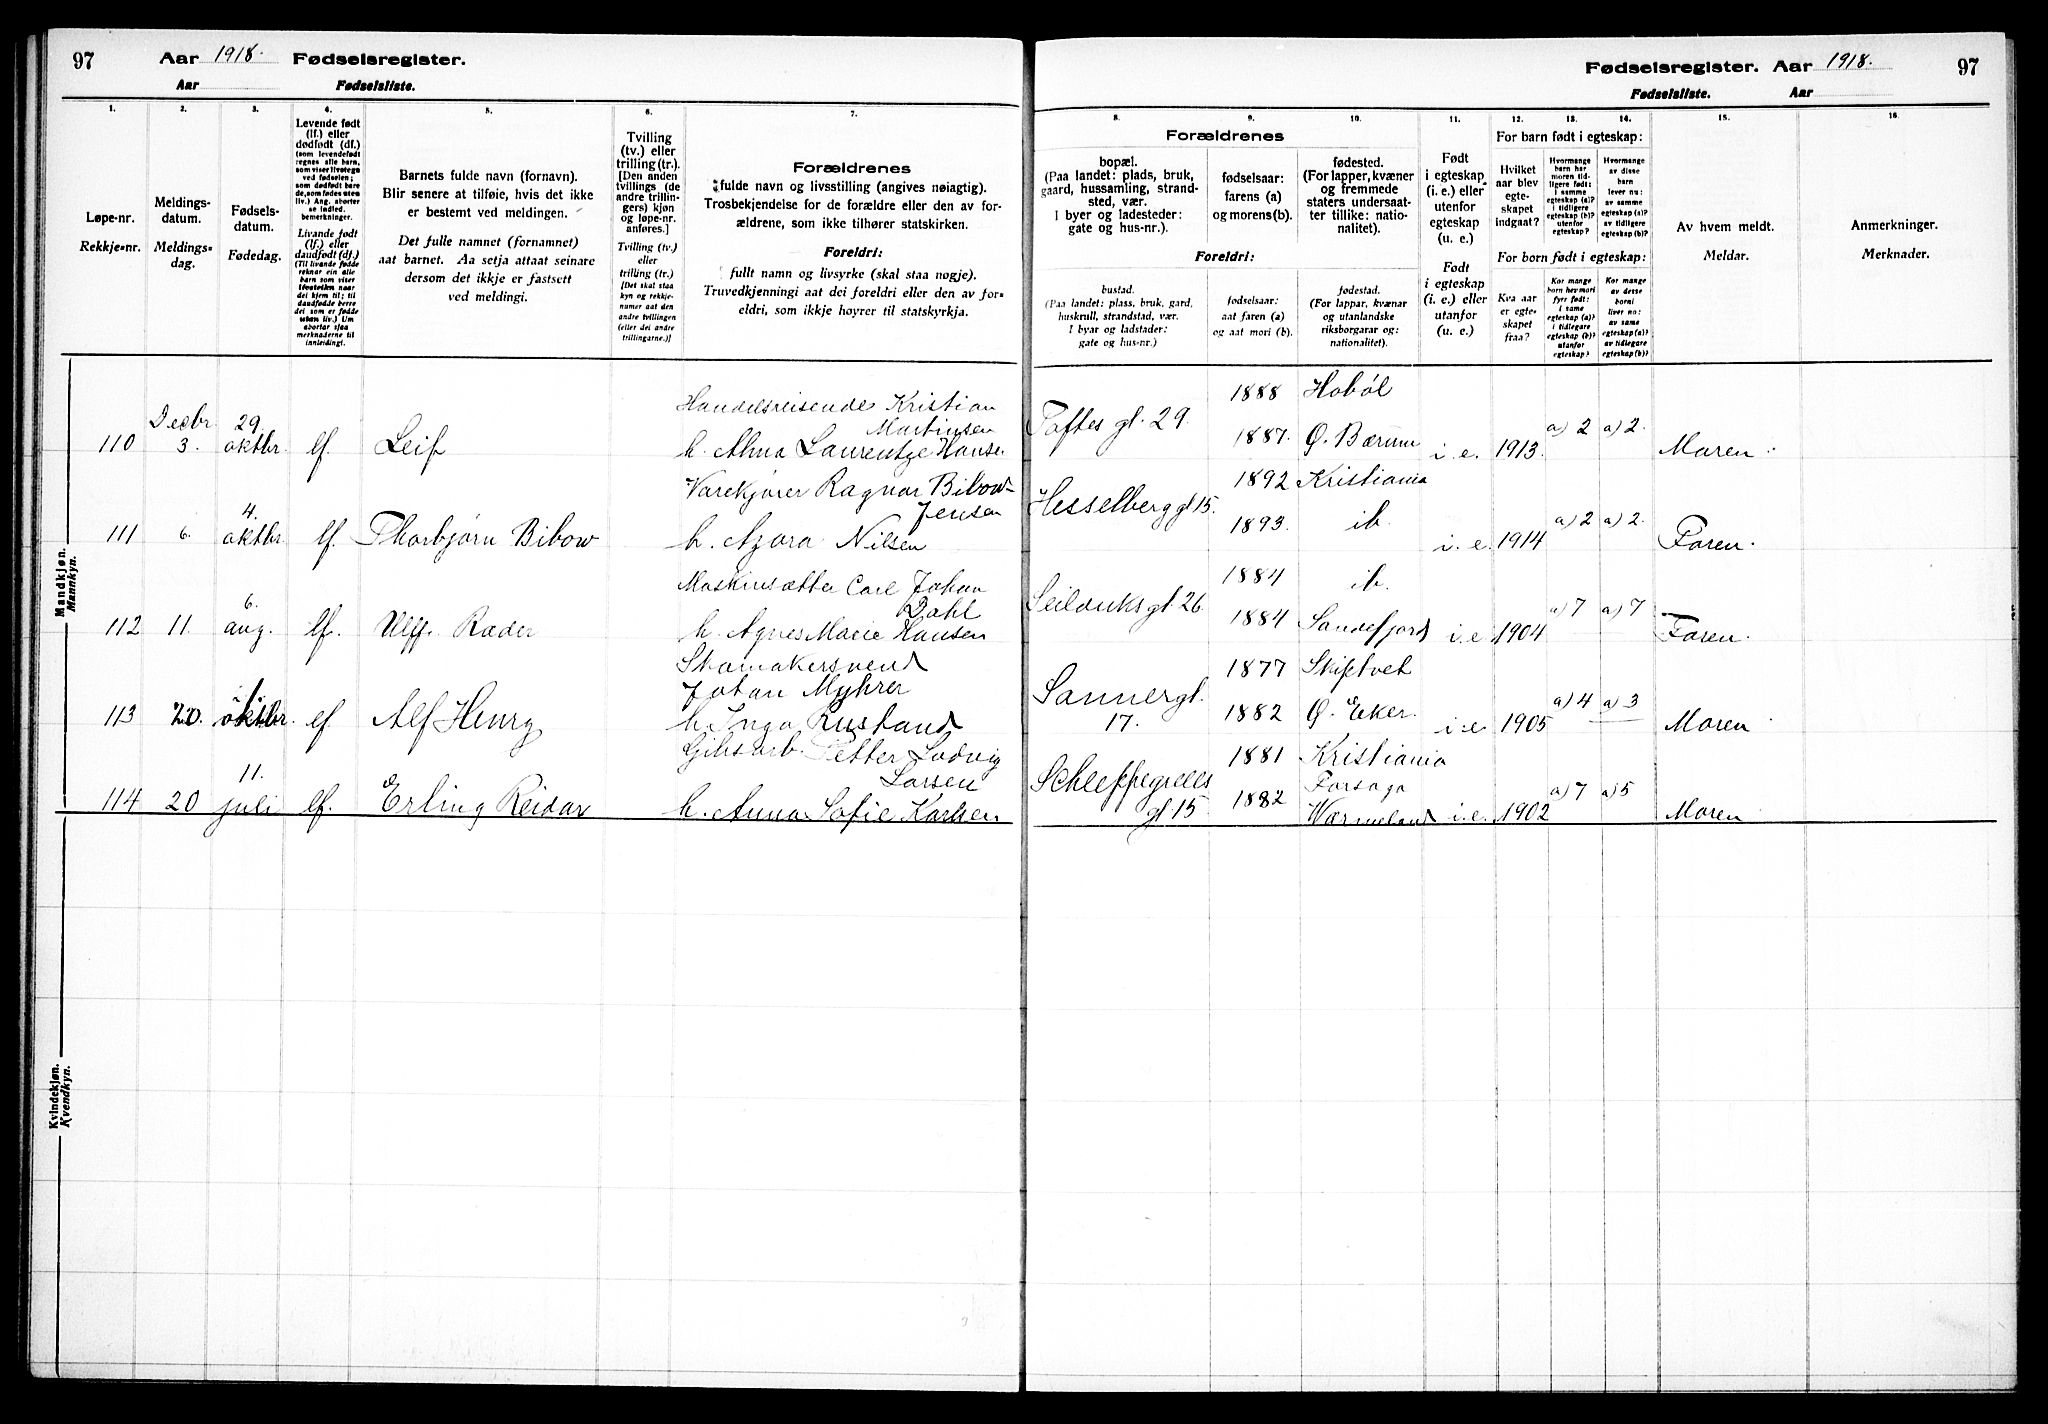 97 Aar 1918. Fødselsregister.
Aar Fødselsliste.
Fødselsregister. Aar 1918. 97
Fødselsliste. Aar
1. 2. 3. 4. 5. 6. 7.
Løpe-nr.
Rekkje-nr.
Meldings-
datum.
Meldings-
dag.
Fødsels-
datum.
Fødedag.
Levende født
(lf.) eller
dødfødt (df.)
(som levendefødt
regnes alle barn,
som viser livstegn
ved fødselen;
som dødfødt bare
de, som fødes uten
liv.) Ang. aborter
se indled.
bemerkninger.
Livande født
(lf.) eller
daudfødt (df.)
(Til livande fødde
reknar ein alle
barn som viser
livsteikn naar
dei kjem til; til
daudfødde berre
dei som er fødde
utan liv.) Um
abortar sjaa
merknaderne til
innleidingi.
Barnets fulde navn (fornavn).
Blir senere at tilføie, hvis det ikke
er bestemt ved meldingen.
Det fulle namnet (fornamnet)
aat barnet. Aa setja attaat seinare
dersom det ikkje er fastsett
ved meldingi.
Tvilling
(tv.) eller
trilling (tr.).
[Den anden
tvillings (de
andre trillin-
gers) kjøn
og løpe-nr.
anføres.]
Tvilling (tv.)
eller
trilling (tr.)
[Det skal staa
kyn og rekkje-
numer aat den
andre tvillingen
(eller dei andre
trillingarne.)]
Forældrenes
fulde navn og livsstilling (angives nøiagtig).
Trosbekjendelse for de forældre eller den av for-
ældrene, som ikke tilhører statskirken.
Foreldri:
fullt namn og livsyrke (skal staa nøgje).
Truvedkjenningi aat dei foreldri eller den av for-
eldri, som ikkje høyrer til statskyrkja.
8. 9. 10. 11. 12. 13. 14. 15. 16.
Forældrenes
bopæl.
(Paa landet: plads, bruk,
gaard, hussamling, strand-
sted, vær.
I byer og ladesteder:
gate og hus-nr.).
fødselsaar:
farens (a)
og morens (b).
fødested.
(For lapper, kvæner
og fremmede
staters undersaat-
ter tillike: natio-
nalitet).
Foreldri:
bustad.
(Paa landet: plass, bruk, gard,
huskrull, strandstad, vær.
I byar og ladstader:
gate og hus-nr.)
fødselsaar:
aat faren (a)
og aat mori (b).
fødestad.
(For lappar, kvænar
og utanlandske
riksborgarar og:
nationalitet).
Født
i egteskap
(i. e.) eller
utenfor
egteskap
(u. e.)
Født
i egteskap
(i. e.) eller
utanfor
(u. e.)
For barn født i egteskap:
Hvilket
aar blev
egte-
skapet
indgaat?
Hvormange
barn har
moren tid-
ligere født:
I samme
egteskap (a)?
I tidligere
egteskap (b)?
utenfor
egteskap?
Hvormange
av disse
barn
lever nu:
av samme
egteskap (a)?
av tidligere
egteskap (b)?
For born født i egteskap:
Kva aar
er egte-
skapet
fraa?
Kor mange
born hev mori
fyrr født:
I same
egteskap (a)?
I tidlegare
egteskap (b)?
utanfor
egteskap?
Kor mange
av desse
borni
liver no:
av same
egteskap (a)?
av tidlegare
egteskap (b)?
Av hvem meldt.
Meldar.
Anmerkninger.
Merknader.
Mandkjøn.
Mannkyn.
Handelsreisende Kristian
Martinsen
110 Decbr 3. 29. oktbr. lf. Leif h. Alma Laurentze Hansen
Toftes gt. 29. 1888 Hobøl
1887. Ø. Bærum i. e. 1913. a) 2 a) 2. Moren.
Varekjører Ragnar Bibow-
Jensen
111 6. 4. oktbr. lf. Thorbjørn Bibow h. Azora Nilsen
Hesselberg gt 15. 1892 Kristiania
1893. ib. i. e. 1914 a) 2 a) 2. Faren.
Maskinsætter Carl Johan
Dahl
112 11. 6. aug. lf. Ulff. Ræder h. Agnes Marie Hansen
Seilduks gt. 26. 1884 ib.
1884 Sandefjord i. e. 1904 a) 7 a) 7 Faren.
Skomakersvend
Johan Myhrer
113 20. 1. oktbr. lf Alf Henry h. Inga Rustand
Sannergt. 17. 1877 Skiptvet
1882 Ø. Eker. i. e. 1905 a) 4 a) 3 Moren.
Gibsarb. Petter Ludvig
Larsen
114 20 11. juli lf. Erling Reidar h. Anna Sofie Karlsen
Schleppegrells gt. 15. 1881 Kristiania
1882 Værmeland i. e. 1902 a) 7 a) 5 Moren
Kvindekjøn.
Kvendkyn.